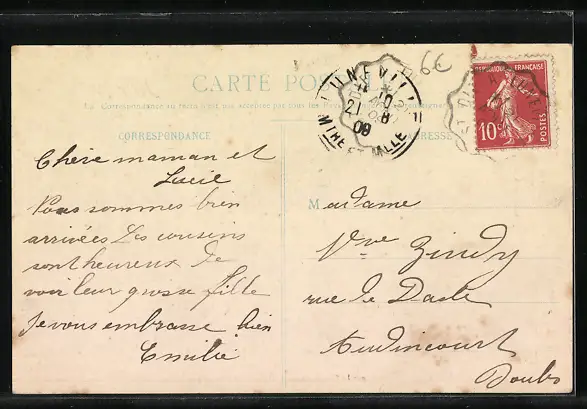 6€
CARTE POSTALE
La Correspondance au recto n'est pas acceptée par tous les Pays
CORRESPONDANCE
ADRESSE
LUNEVILLE
21 - 8
09
MTHE ET MLLE
REPUBLIQUE FRANÇAISE
10c
POSTES
Chère maman et
Lucie
Nous sommes bien
arrivées Les cousins
sont heureux de
voir leur grosse fille
Je vous embrasse bien
Emilie
Madame
Vve Zindy
rue le Dasle
Audincourt
Doubs